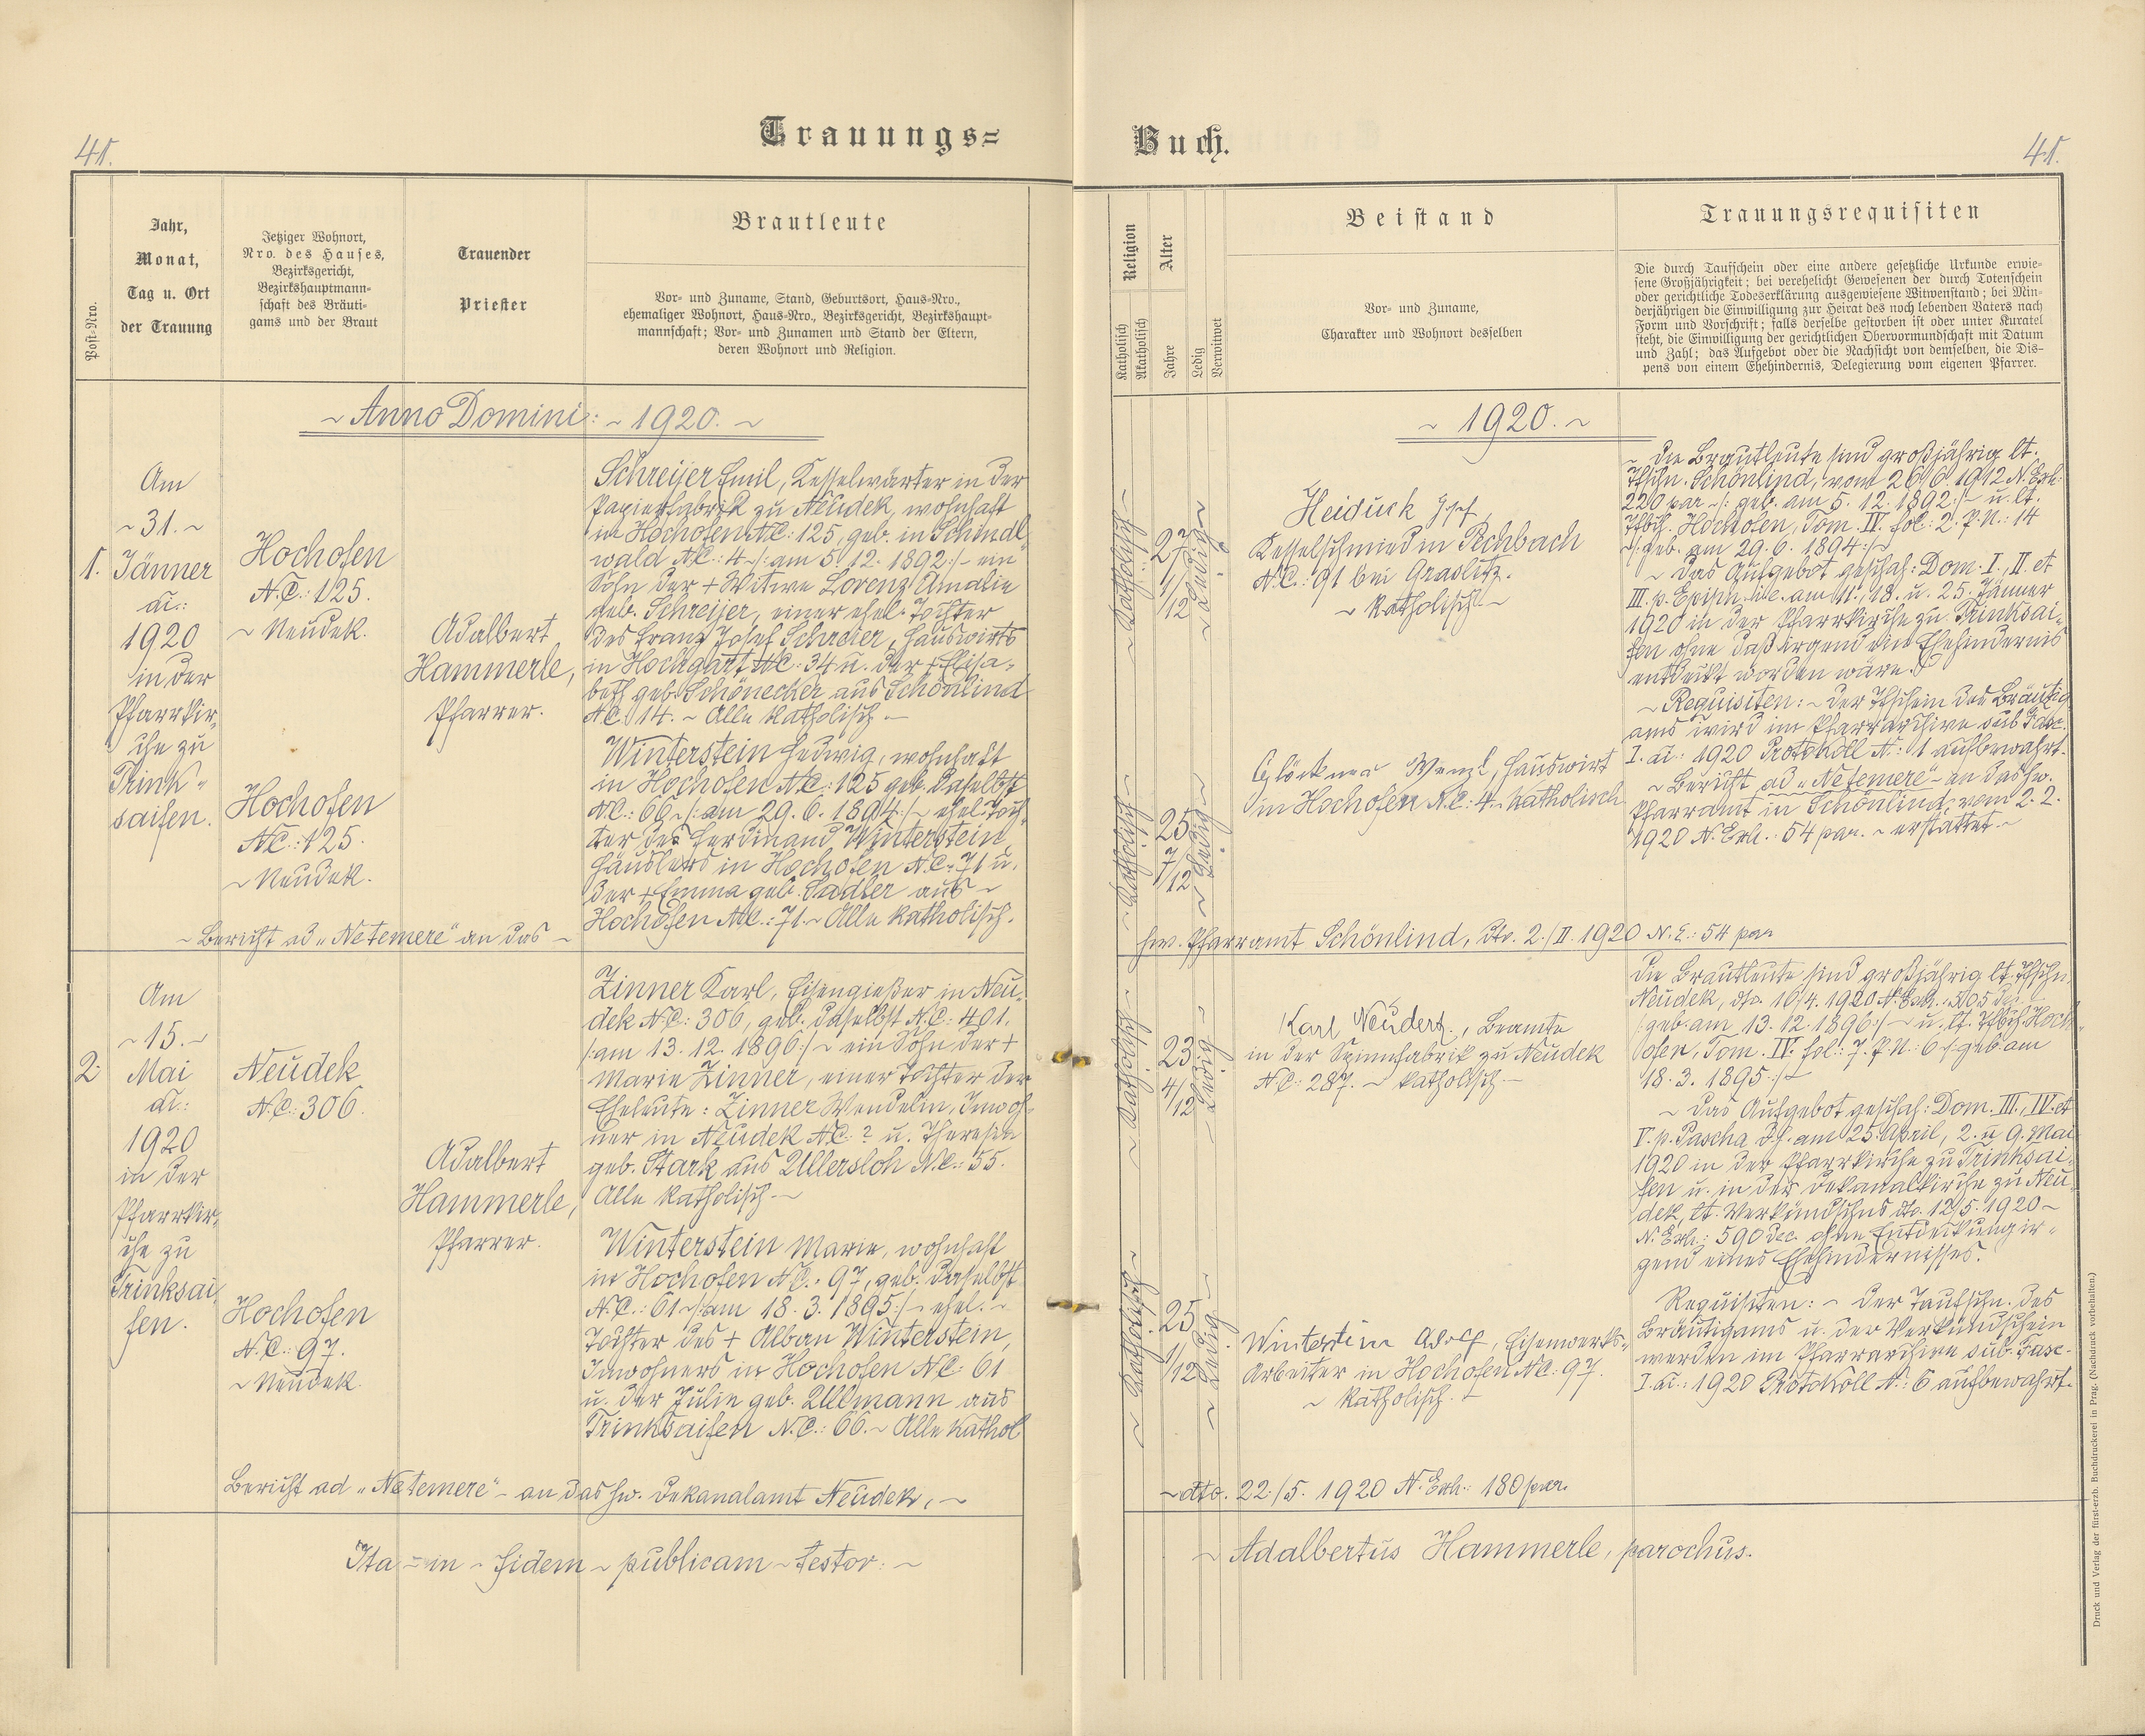 41.
Trauungs=
Post-Nro.
Jahr,
Monat,
Tag u. Ort
der Trauung
Jetziger Wohnort,
Nro. des Hauses,
Bezirksgericht,
Bezirkshauptmann=
schaft des Bräuti=
gams und der Braut
Trauender
Priester
Brautleute
Vor= und Zuname, Stand, Geburtsort, Haus=Nro.,
ehemaliger Wohnort, Haus=Nro., Bezirksgericht, Bezirkshaupt=
mannschaft; Vor= und Zunamen und Stand der Eltern,
deren Wohnort und Religion.
~ Anno Domini: ~ 1920. ~
1.
Am
~ 31. ~
Jänner
ai.:
1920
in der
Pfarrkir,
che zu
Trink=
saifen.
Hochofen
N.C.: 125.
~ Neudek.
Hochofen
N.C.: 125.
~ Neudek.
Adalbert
Hammerle,
Pfarrer.
Schreijer Emil, Kesselwärter in der
Papierfabrik zu Neudek, wohnhaft
in Hochofen N.C.: 125, geb. in Schindl
wald N.C.: 4 ~ /: am 5. 12. 1892 :/ ~ ein
Sohn der + Witwe Lorenz Amalie
geb. Schreijer, einer ehel. Tochter
des Franz Josef Schreier, Hauswirts
in Hochgart N.C.: 34 u. der + Elisa=
beth geb. Schönecker aus Schönlind
N.C. 14. ~ Alle katholisch. ~
Winterstein Hedwig, wohnhaft
in Hochofen N.C.: 125 geb. daselbst
N.C.: 66 ~ /: am 29. 6. 1894 :/ ~ ehel. Toch=
ter des Ferdinand Winterstein,
Häuslers in Hochofen N.C.: 71 u.
der + Emma geb. Sadler aus ~
Hochofen N.C.: 71. ~ Alle katholisch.
~ Bericht ad „Ne temere" an das ~
2.
Am
~ 15. ~
Mai
ai.:
1920
in der
Pfarrkir,
che zu
Trinksai,
fen.
Neudek
N.C.: 306.
Hochofen
N.C.: 97.
~ Neudek.
Adalbert
Hammerle,
Pfarrer.
Zinner Karl, Eisengießer in Neu=
dek N.C.: 306, geb. daselbst N.C.: 401.
/: am 13. 12. 1896 :/ ~ ein Sohn der +
Marie Zinner, einer Tochter der
Eheleute: Zinner Wendelin, Inwoh=
ner in Neudek N.C.: ? u. Theresia
geb. Stark aus Ullersloh N.C.: 55.
Alle katholisch. ~
Winterstein Marie, wohnhaft
in Hochofen N.C.: 97, geb. daselbst
N.C.: 61 ~ /: am 18. 3. 1895 :/ ~ ehel. ~
Tochter des + Alban Winterstein,
Inwohners in Hochofen N.C.: 61
u. der Julie geb. Ullmann aus
Trinksaifen N.C.: 66. ~ Alle kathol.
Bericht ad „Ne temere" ~ an das hw. Dekanalamt Neudek, ~
Ita ~ in ~ fidem ~ publicam ~ testor: ~
Buch.
41.
Religion
Katholisch
Akatholisch
Alter
Jahre
Ledig
Verwitwet
Beistand
Vor= und Zuname,
Charakter und Wohnort desselben
Trauungsrequisiten
Die durch Taufschein oder eine andere gesetzliche Urkunde erwie=
sene Großjährigkeit; bei verehelicht Gewesenen der durch Totenschein
oder gerichtliche Todeserklärung ausgewiesene Witwenstand; bei Min=
derjährigen die Einwilligung zur Heirat des noch lebenden Vaters nach
Form und Vorschrift; falls derselbe gestorben ist oder unter Kuratel
steht, die Einwilligung der gerichtlichen Obervormundschaft mit Datum
und Zahl; das Aufgebot oder die Nachsicht von demselben, die Dis=
pens von einem Ehehindernis, Delegierung vom eigenen Pfarrer.
~ 1920. ~
~ Katholisch ~
27
1/12
~ Ledig ~
~ Katholisch ~
25
7/12
~ Ledig ~
Heiduck Josef,
Kesselschmied in Rohbach
N.C.: 91 bei Graslitz.
~ katholisch. ~
Glöckner Wenzl, Hauswirt
in Hochofen N.C.: 4. katholisch
~ Die Brautleute sind großjährig lt.
Tfschn. Schönlind, vom 26/6. 1912 N. Exh.
220 par. ~ /: geb. am 5. 12. 1892 :/ ~ u. lt.
Tfbch. Hochofen, Tom. IV. fol.: 2. P.N.: 14
~ /: geb. am 29. 6. 1894 :/ ~
~ Das Aufgebot geschah: Dom. I., II. et
III. p. Epiph. i.e. am 11., 18. u. 25. Jänner
1920 in der Pfarrkirche zu Trinksai=
fen ohne daß irgend ein Ehehindernis
entdeckt worden wäre.
~ Requisiten: ~ Der Tfschein des Bräutig
ams wird im Pfarrarchive sub Fasc.
I. ai.: 1920 Protokoll N.: 1 aufbewahrt.
~ Bericht ad „Ne temere" ~ an das hw.
Pfarramt in Schönlind, vom 2. 2.
1920 N. Exh.: 54 par. ~ erstattet. ~
hw. Pfarramt Schönlind, dto. 2./II. 1920 N. E.: 54 par.
~ Katholisch ~
23
4/12
~ Ledig ~
~ Katholisch ~
25
1/12
~ Ledig ~
Karl Neudert, Beamte
in der Spinnfabrik zu Neudek
N.C.: 287. ~ katholisch. ~
Winterstein Adolf, Eisenwerks=
Arbeiter in Hochofen N.C.: 97.
~ katholisch. ~
Die Brautleute sind großjährig lt. Tfschn.
Neudek, dto. 10/4. 1920 N. Exh.: 505 dec. ~
/: geb. am 13. 12. 1896 :/ ~ u. lt. Tfbch. Hoch=
ofen, Tom. IV. fol.: 7. P.N.: 6 /: geb. am
18. 3. 1895 :/ ~
~ Das Aufgebot geschah: Dom. III., IV. et
V. p. Pascha d.h. am 25. April, 2. u. 9. Mai
1920 in der Pfarrkirche zu Trinksai=
fen u. in der Dekanalkirche zu Neu=
dek, lt. Verkündschns dto. 12/5. 1920 ~
N. Exh.: 590 dec. ohne Entdeckung ir=
gend eines Ehehindernisses.
Requisiten: ~ Der Taufschn. des
Bräutigams u. der Verkündschein
werden im Pfarrarchive sub. Fasc.
I. ai.: 1920 Protokoll N.: 6 aufbewahrt.
~ dto. 22./5. 1920 N. Exh.: 180 par.
~ Adalbertus Hammerle, parochus.
Druck und Verlag der fürst-erzb. Buchdruckerei in Prag. (Nachdruck vorbehalten.)